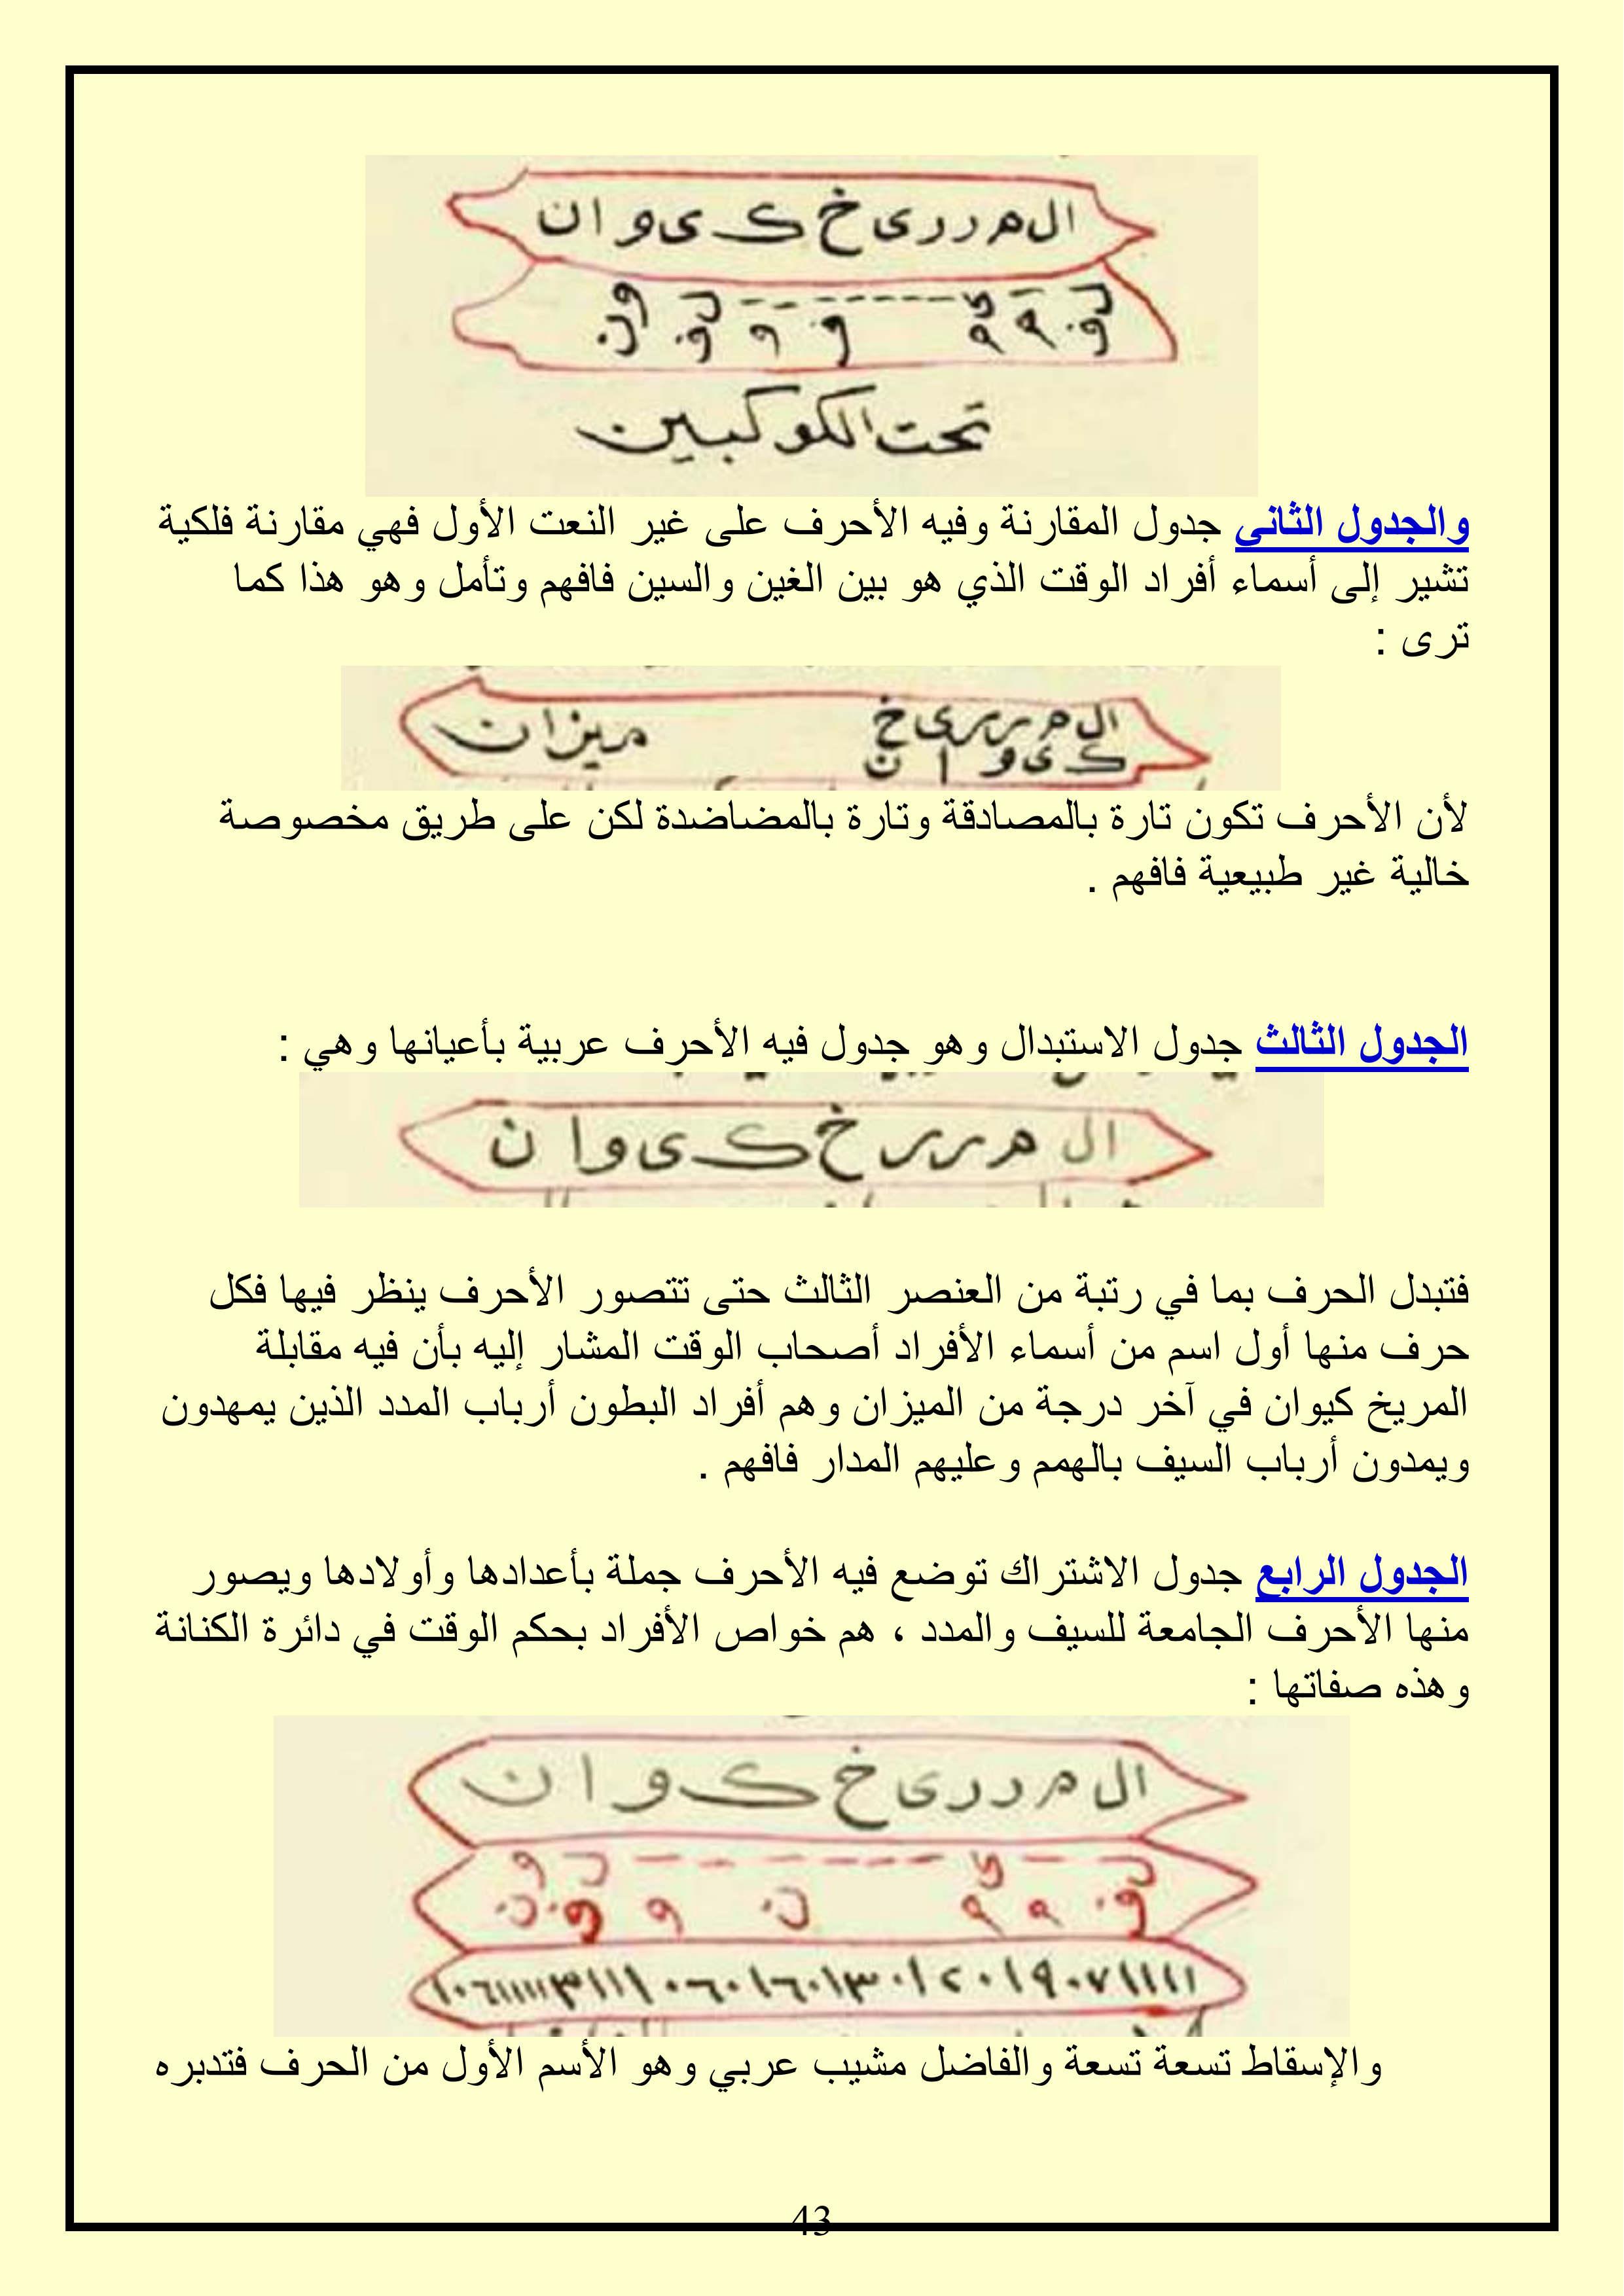 ال م ر ر ى خ ك ى و ا ن
تحت الكوكبين
والجدول الثاني جدول المقارنة وفيه الأحرف على غير النعت الأول فهي مقارنة فلكية
تشير إلى أسماء أفراد الوقت الذي هو بين الغين والسين فافهم وتأمل وهو هذا كما
ترى :
ال م ر ر ى خ ميزان
ك ى و ا ن
لأن الأحرف تكون تارة بالمصادقة وتارة بالمضاضدة لكن على طريق مخصوصة
خالية غير طبيعية فافهم .
الجدول الثالث جدول الاستبدال وهو جدول فيه الأحرف عربية بأعيانها وهي :
ال م ر ر خ ك ى و ا ن
فتبدل الحرف بما في رتبة من العنصر الثالث حتى تتصور الأحرف ينظر فيها فكل
حرف منها أول اسم من أسماء الأفراد أصحاب الوقت المشار إليه بأن فيه مقابلة
المريخ كيوان في آخر درجة من الميزان وهم أفراد البطون أرباب المدد الذين يمهدون
ويمدون أرباب السيف بالهمم وعليهم المدار فافهم .
الجدول الرابع جدول الاشتراك توضع فيه الأحرف جملة بأعدادها وأولادها ويصور
منها الأحرف الجامعة للسيف والمدد ، هم خواص الأفراد بحكم الوقت في دائرة الكنانة
وهذه صفاتها :
ال م ر ر ى خ ك و ا ن
والإسقاط تسعة تسعة والفاضل مشيب عربي وهو الأسم الأول من الحرف فتدبره
43